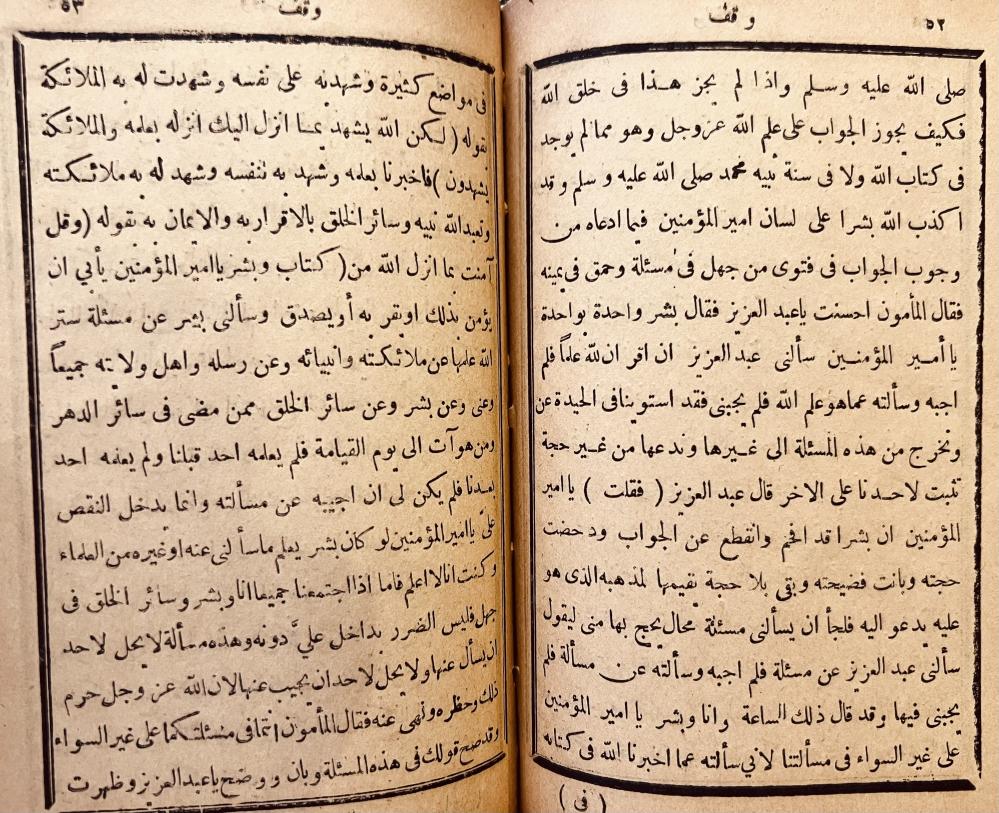 ٥٢
وقف
صلى الله عليه وسلم واذا لم يجز هذا فى خلق الله
فكيف يجوز الجواب على علم الله عز وجل وهو مما لم يوجد
فى كتاب الله ولا فى سنة نبيه محمد صلى الله عليه وسلم وقد
اكذب الله بشرا على لسان امير المؤمنين فيما ادعاه من
وجوب الجواب فى فتوى من جهل فى مسئلة وحمق فى يمينه
فقال المأمون احسنت ياعبد العزيز فقال بشر واحدة بواحدة
يا أمير المؤمنين سألنى عبد العزيز ان اقر ان لله علماً فلم
اجبه وسألته عما هو علم الله فلم يجبنى فقد استوينا فى الحيدة عن
ونخرج من هذه المسئلة الى غيرها وندعها من غير حجة
تثبت لاحدنا على الاخر قال عبد العزيز ( فقلت ) يا امير
المؤمنين ان بشرا قد افحم وانقطع عن الجواب ودحضت
حجته وبانت فضيحته وبقى بلا حجة نقيمها لمذهبه الذى هو
عليه يدعو اليه فلجأ ان يسألنى مسئلة محال يحج بها منى ليقول
سألنى عبد العزيز عن مسئلة فلم اجبه وسألته عن مسألة فلم
يجبنى فيها وقد قال ذلك الساعة وانا وبشر يا امير المؤمنين
على غير السواء فى مسألتنا لانى سألته عما اخبرنا الله فى كتابه
( فى )
وقف
٥٣
فى مواضع كثيرة وشهد به على نفسه وشهدت له به الملائكة
بقوله ( لكن الله يشهد بما انزل اليك انزله بعلمه والملائكة
يشهدون ) فاخبرنا بعلمه وشهد به بنفسه وشهد له به ملائكته
وتعبد الله نبيه وسائر الخلق بالاقرار به والايمان به بقوله ( وقل
آمنت بما انزل الله من ( كتاب وبشر يا امير المؤمنين يأبي ان
يؤمن بذلك او يقر به أو يصدق وسألنى بشر عن مسئلة ستر
الله علمها عن ملائكته وانبيائه وعن رسله واهل ولايته جميعاً
وعنى وعن بشر وعن سائر الخلق ممن مضى فى سائر الدهر
ومن هو آت الى يوم القيامة فلم يعلمه احد قبلنا ولم يعلمه احد
بعدنا فلم يكن لى ان اجيبه عن مسألته وانما يدخل النقص
علىّ يا امير المؤمنين لو كان بشر يعلم ما سألنى عنه او غيره من العلماء
وكنت انا لا اعلم فاما اذا اجتمعنا جميعا انا وبشر وسائر الخلق فى
جهل فليس الضرر بداخل عليّ دونه وهذه مسألة لا يحل لاحد
ان يسأل عنها ولا يحل لاحد ان يجيب عنها لان الله عز وجل حرم
ذلك وحظره ونهى عنه فقال المأمون انتما فى مسئلتكما على غير السواء
وقد صح قولك فى هذه المسئلة وبان ووضح يا عبد العزيز وظهرت